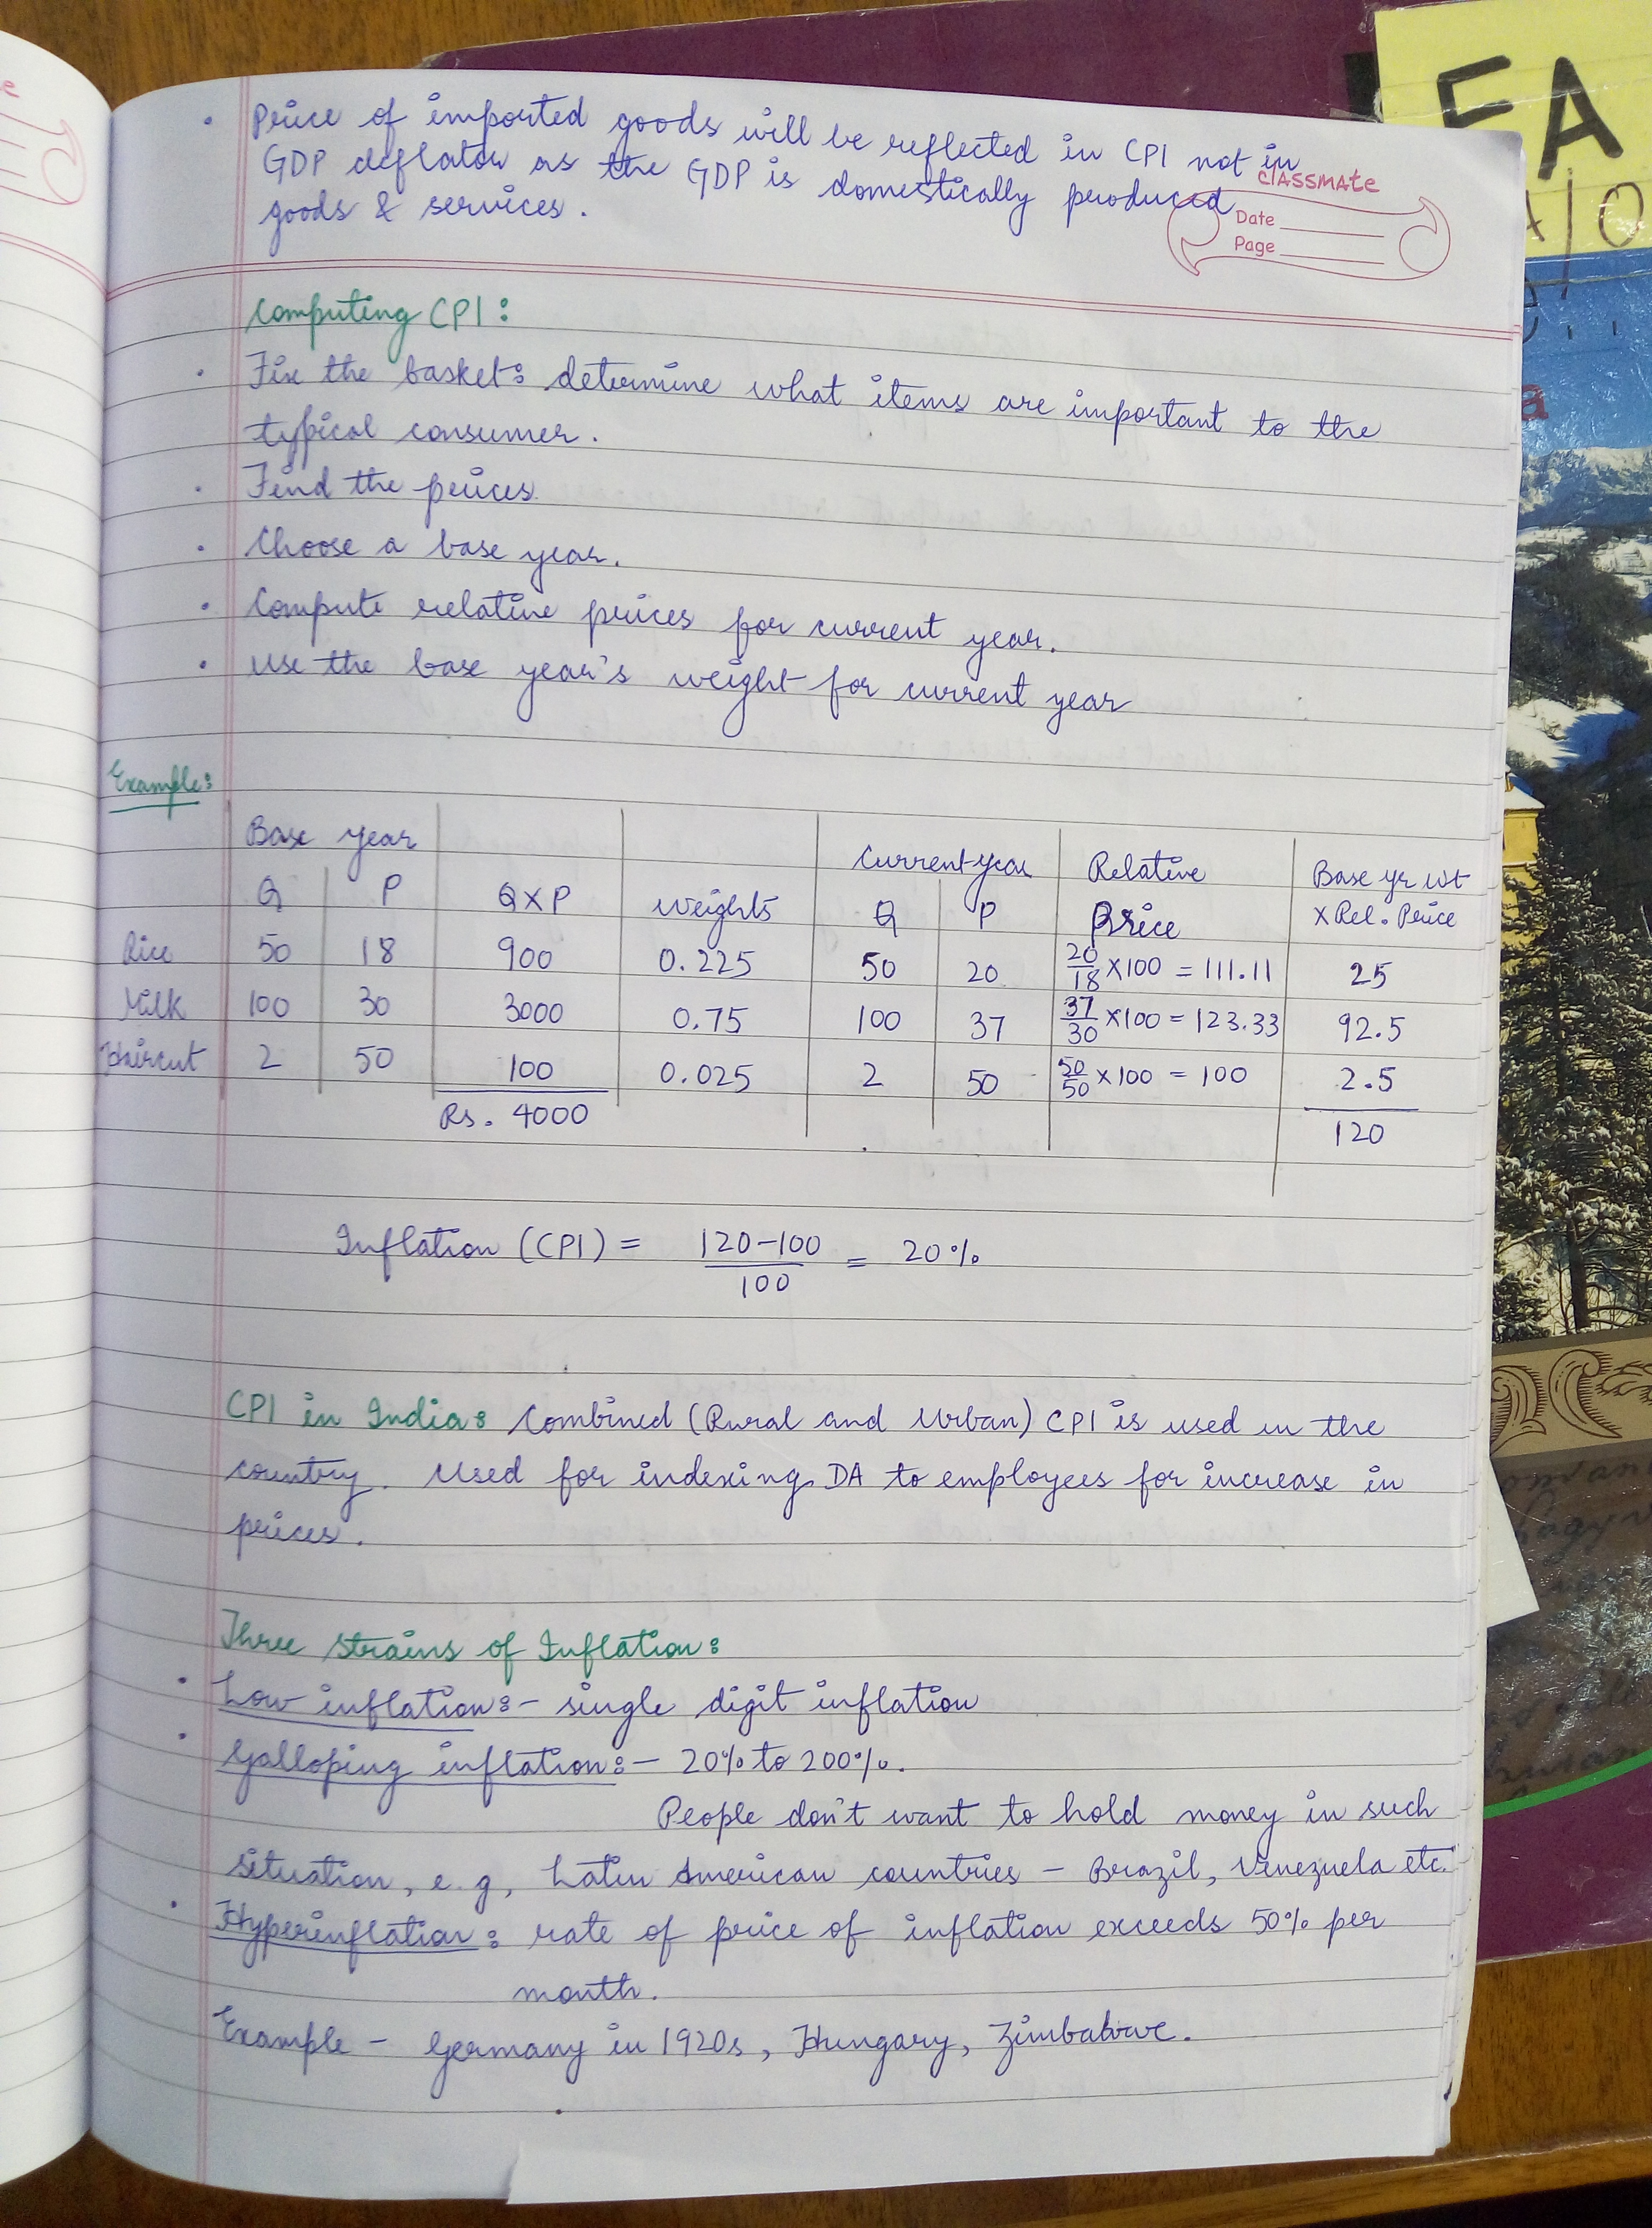 • Price of imported goods will be reflected in CPI not in
GDP deflator as the GDP is domestically produced
goods & services.
classmate
Date
Page
Computing CPI:
• Fix the basket: determine what items are important to the
typical consumer.
• Find the prices.
• Choose a base year.
• Compute relative prices for current year.
• Use the base year's weight for current year
Example:
Base year Current year Relative Base yr wt
Q P Q×P weights Q P Price × Rel. Price
Rice 50 18 900 0.225 50 20 20/18 ×100 = 111.11 25
Milk 100 30 3000 0.75 100 37 37/30 ×100 = 123.33 92.5
Haircut 2 50 100 0.025 2 50 50/50 ×100 = 100 2.5
Rs. 4000 120
Inflation (CPI) = 120-100/100 = 20%
CPI in India: Combined (Rural and Urban) CPI is used in the
country. Used for indexing DA to employees for increase in
prices.
Three strains of Inflation:
• Low inflation:- single digit inflation
• Galloping inflation:- 20% to 200%.
People don't want to hold money in such
situation, e.g, Latin American countries – Brazil, Venezuela etc.
• Hyperinflation: rate of price of inflation exceeds 50% per
month.
Example – Germany in 1920s, Hungary, Zimbabwe.
FA